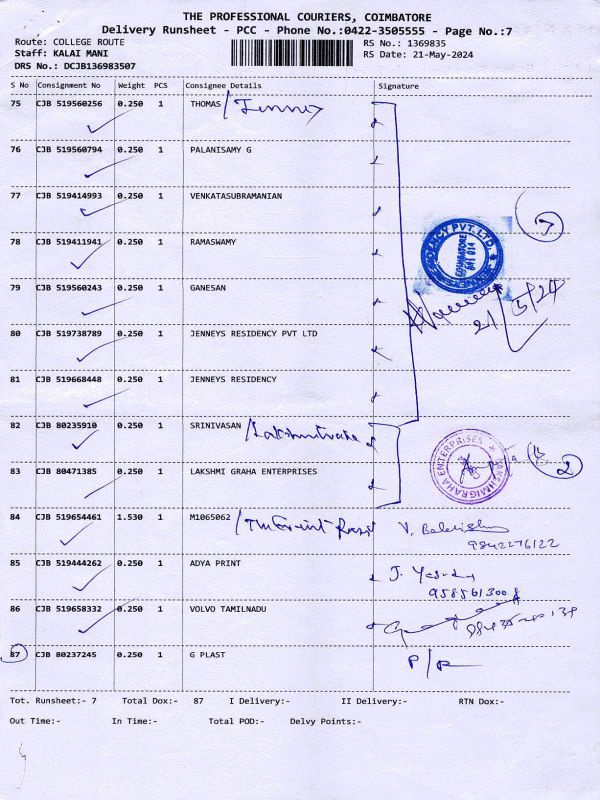 THE PROFESSIONAL COURIERS, COIMBATORE
Delivery Runsheet - PCC - Phone No.:0422-3505555 - Page No.:7
Route: COLLEGE ROUTE RS No.: 1369835
Staff: KALAI MANI RS Date: 21-May-2024
DRS No.: DCJB136983507
S No Consignment No Weight PCS Consignee Details Signature
75 CJB 519560256 0.250 1 THOMAS / Jenneys
76 CJB 519560794 0.250 1 PALANISAMY G
77 CJB 519414993 0.250 1 VENKATASUBRAMANIAN
7
78 CJB 519411941 0.250 1 RAMASWAMY
COIMBATORE 641 014
79 CJB 519560243 0.250 1 GANESAN
21/5/24
80 CJB 519738789 0.250 1 JENNEYS RESIDENCY PVT LTD
81 CJB 519668448 0.250 1 JENNEYS RESIDENCY
82 CJB 80235910 0.250 1 SRINIVASAN
LAKSHMIGRAHA ENTERPRISES
2
83 CJB 80471385 0.250 1 LAKSHMI GRAHA ENTERPRISES
84 CJB 519654461 1.530 1 M1065062
9842276122
85 CJB 519444262 0.250 1 ADYA PRINT
86 CJB 519658332 0.250 1 VOLVO TAMILNADU
87 CJB 80237245 0.250 1 G PLAST
Tot. Runsheet:- 7 Total Dox:- 87 I Delivery:- II Delivery:- RTN Dox:-
Out Time:- In Time:- Total POD:- Delvy Points:-